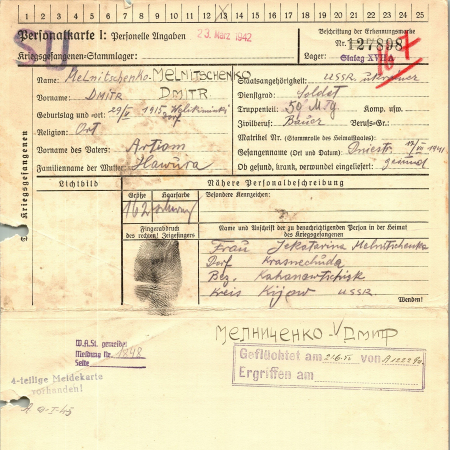 1 2 3 4 5 6 7 8 9 10 11 12 13 14 15 16 17 18 19 20 21 22 23 24 25
Personalkarte I: Personelle Angaben
Kriegsgefangenen-Stammlager:
SU
23. März 1942
Beschriftung der Erkennungsmarke
Nr. 127808
Lager: Stalag XVII
Name: Melnitschenko. MELNITSCHENKO
Vorname: DMITR DMITR
Geburtstag und -ort: 1915,
Religion: Ort
Vorname des Vaters: Artiom
Familienname der Mutter: Hawura
Staatsangehörigkeit: USSR. ukrainer
Dienstgrad: Soldat
Truppenteil: 59
Zivilberuf: Bauer Berufs-Gr.
Matrikel Nr. (Stammrolle des Heimatstaates)
Gefangennahme (Ort und Datum): Dniestr 1941
Ob gesund, krank, verwundet eingeliefert: gesund
Des Kriegsgefangenen
Lichtbild
Nähere Personalbeschreibung
Größe Haarfarbe Besondere Kennzeichen:
162 schwarz
Fingerabdruck
des rechten! Zeigefingers
Name und Anschrift der zu benachrichtigenden Person in der Heimat
des Kriegsgefangenen
Frau Jekatarina Melnitschenko
Dorf Krasnechuda
Bzg. Kahanowtschisk
Kreis Kijow USSR.
Wenden!
МЕЛНИЧЕНКО ДМИТР
W.A.St. gemeldet
Meldung Nr. 1248
Seite
4-teilige Meldekarte
vorhanden!
Geflüchtet am von
Ergriffen am